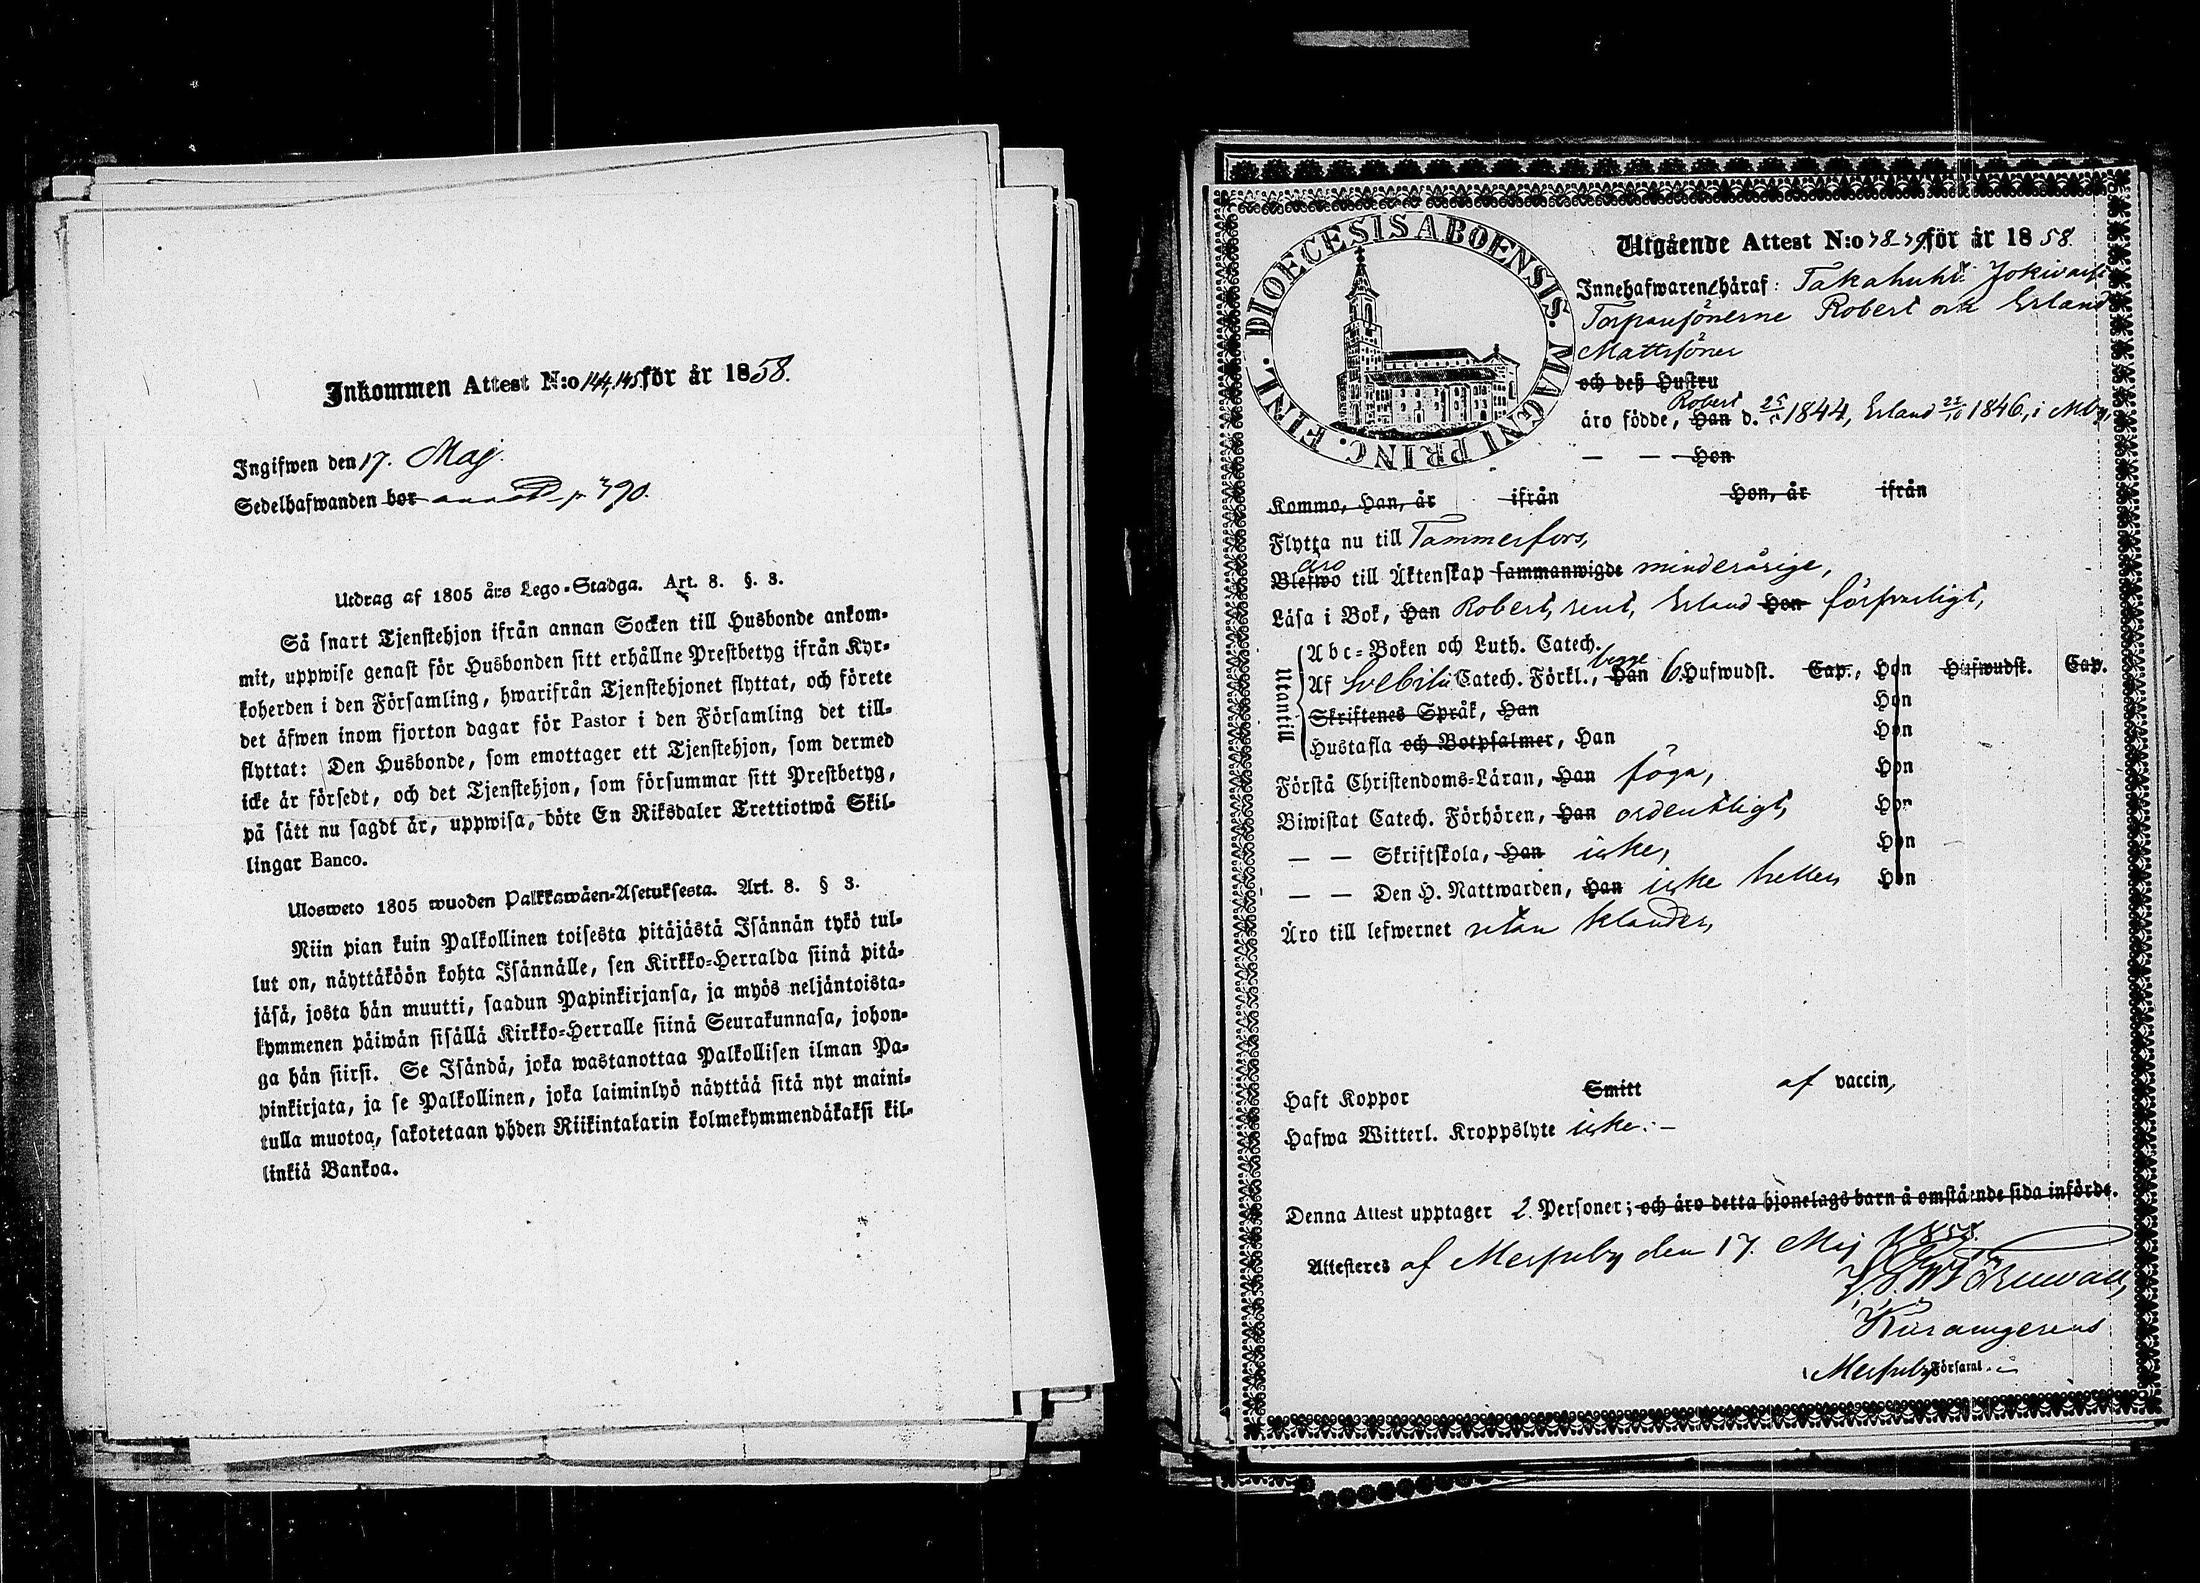 Inkommen Attest N:o 144,145 för år 1858.
Ingifwen den 17. Maj.
Sedelhafwanden bor annot p 390.
Utdrag af 1805 års Lego-Stadga. Art. 8. §. 3.
Så snart Tjenstehjon ifrån annan Socken till Husbonde ankom-
mit, uppwise genast för Husbonden sitt erhållne Prestbetyg ifrån Kyr-
koherden i den Församling, hwarifrån Tjenstehjonet flyttat, och förete
det äfwen inom fjorton dagar för Pastor i den Församling det till-
flyttat: Den Husbonde, som emottager ett Tjenstehjon, som dermed
icke är försedt, och det Tjenstehjon, som försummar sitt Prestbetyg,
på sätt nu sagdt är, uppwisa, böte En Riksdaler Trettiotwå Skil-
lingar Banco.
Ulosweto 1805 wuoden Palkkawäen-Asetuksesta. Art. 8. § 3.
Niin pian kuin Palkollinen toisesta pitäjästä Isännän tykö tul-
lut on, näyttäköön kohta Isännälle, sen Kirkko-Herralda siinä pitä-
jäsä, josta hän muutti, saadun Papinkirjansa, ja myös neljäntoista-
kymmenen päiwän sisällä Kirkko-Herralle siinä Seurakunnasa, johon-
ga hän siirsi. Se Isändä, joka wastanottaa Palkollisen ilman Pa-
pinkirjata, ja se Palkollinen, joka laiminlyö näyttää sitä nyt maini-
tulla muotoa, sakotetaan yhden Riikintalarin kolmekymmendäkaksi kil-
linkiä Bankoa.
DIOECESIS ABOENSIS. MAGNI PRINC. FINL.
Utgående Attest N:o 78-79 för år 1858.
Innehafwaren häraf: Takahuhti Jokivarsi
Torparsönerne Robert och Erland
Mattssöner
och deß Hustru
äro födde, Han Robert d. 25/5 1844, Erland 22/10 1846, i Mby,
— — Hon
Kommo, Han, år ifrån Hon, år ifrån
Flytta nu till Tammerfors,
Blefwo äro till Äktenskap sammanwigde minderårige,
Läsa i Bok, Han Robert, rent, Erland Hon försvarligt,
Utantill
Abc-Boken och Luth. Catech.
Af Svebilii Catech. Förkl., Han begge 6. Hufwudst. Cap., Hon Hufwudst. Cap.
Skriftenes Språk, Han Hon
Hustafla och Botpsalmer, Han Hon
Förstå Christendoms-Läran, Han föga, Hon
Biwistat Catech. Förhören, Han ordentligt, Hon
— — Skriftskola, Han icke, Hon
— — Den H. Nattwarden, Han icke heller Hon
Äro till lefwernet utan klander,
Haft Koppor Smitt af vaccin,
Hafwa Witterl. Kroppslyte icke. —
Denna Attest upptager 2 Personer; och äro detta hjonelags barn å omstående sida införde.
Attesteres af Messuby den 17. Maj 1858.
Messuby Församl.